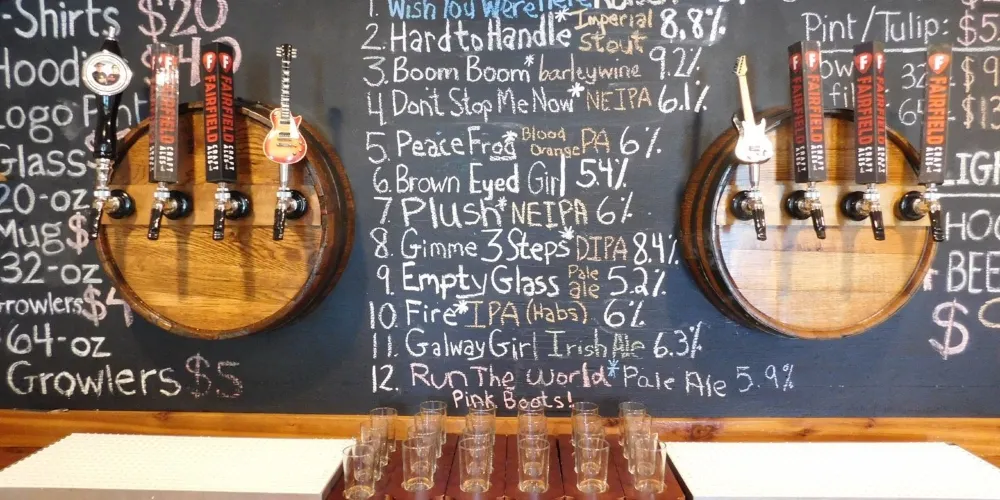 -Shirts $20
Hoodi $40
Logo Pint
Glass
20-oz
Mug $
32-oz
Growlers $4
64-oz
Growlers $5
1. Wish You Were Here
2. Hard to Handle* Imperial Stout 8.8%
3. Boom Boom* barleywine 9.2%
4. Dont Stop Me Now* NEIPA 6.1%
5. Peace Frog* Blood Orange PA 6%
6. Brown Eyed Girl 5.4%
7. Plush* NEIPA 6%
8. Gimme 3 Steps* DIPA 8.4%
9. Empty Glass Pale ale 5.2%
10. Fire* IPA (Habs) 6%
11. Galway Girl Irish Ale 6.3%
12. Run The World* Pale Ale 5.9%
Pink Boots!
Pint/Tulip: $5
32
64
HO
BEE
$9
F FAIRFIELD
F FAIRFIELD
F FAIRFIELD
F FAIRFIELD
F FAIRFIELD